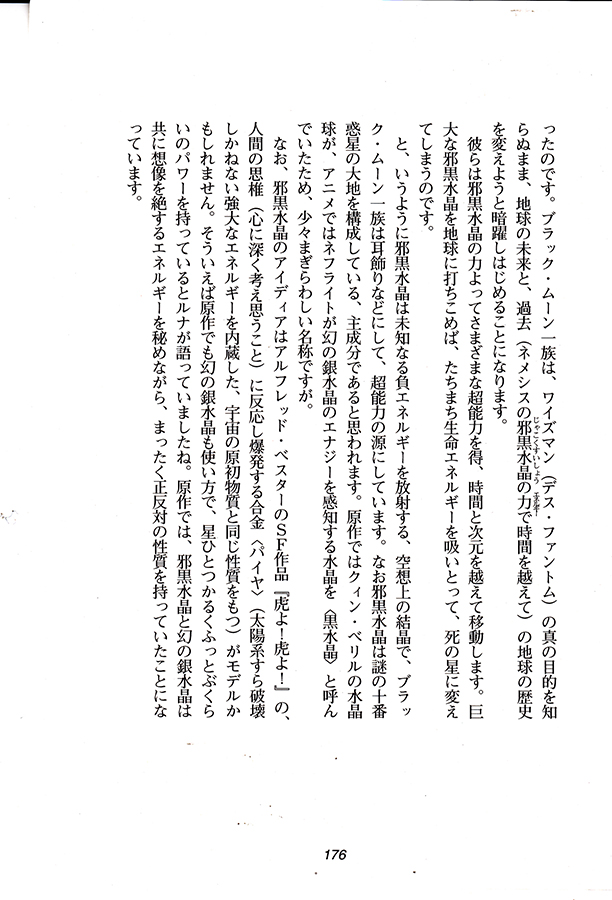 ったのです。ブラック・ムーン一族は、ワイズマン（デス・ファントム）の真の目的を知
らぬまま、地球の未来と、過去（ネメシスの邪黒水晶の力で時間を越えて）の地球の歴史
じゃこくすいしょう エナジー
を変えようと暗躍しはじめることになります。
彼らは邪黒水晶の力よってさまざまな超能力を得、時間と次元を越えて移動します。巨
大な邪黒水晶を地球に打ちこめば、たちまち生命エネルギーを吸いとって、死の星に変え
てしまうのです。
と、いうように邪黒水晶は未知なる負エネルギーを放射する、空想上の結晶で、ブラッ
ク・ムーン一族は耳飾りなどにして、超能力の源にしています。なお邪黒水晶は謎の十番
惑星の大地を構成している、主成分であると思われます。原作ではクィン・ベリルの水晶
球が、アニメではネフライトが幻の銀水晶のエナジーを感知する水晶を〈黒水晶〉と呼ん
でいたため、少々まぎらわしい名称ですが。
なお、邪黒水晶のアイディアはアルフレッド・ベスターのＳＦ作品『虎よ！虎よ！』の、
人間の思惟（心に深く考え思うこと）に反応し爆発する合金〈パイヤ〉（太陽系すら破壊
しかねない強大なエネルギーを内蔵した、宇宙の原初物質と同じ性質をもつ）がモデルか
もしれません。そういえば原作でも幻の銀水晶も使い方で、星ひとつかるくふっとぶくら
いのパワーを持っているとルナが語っていましたね。原作では、邪黒水晶と幻の銀水晶は
共に想像を絶するエネルギーを秘めながら、まったく正反対の性質を持っていたことにな
っています。
176